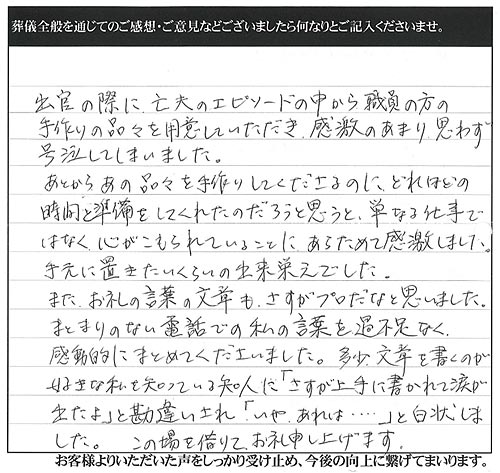 葬儀全般を通じてのご感想・ご意見などございましたら何なりとご記入くださいませ。
出官の際に、亡夫のエピソードの中から職員の方の
手作りの品々を用意していただき、感激のあまり、思わず
号泣してしまいました。
あとからあの品々を手作りしてくださるのに、どれほどの
時間と準備をしてくれたのだろうと思うと、単なる仕事で
はなく、心がこもられていることに、あらためて感激しました。
手元に置きたいくらいの出来栄えでした。
また、お礼の言葉の文章も、さすがプロだなと思いました。
まとまりのない電話での私の言葉を過不足なく、
感動的にまとめてくださいました。多少、文章を書くのが
好きな私を知っている知人に「さすが上手に書かれて涙が
出たよ」と勘違いされ「いや、あれは・・・・」と白状しま
した。 この場を借りて、お礼申し上げます。
お客様よりいただいた声をしっかり受け止め、今後の向上に繋げてまいります。